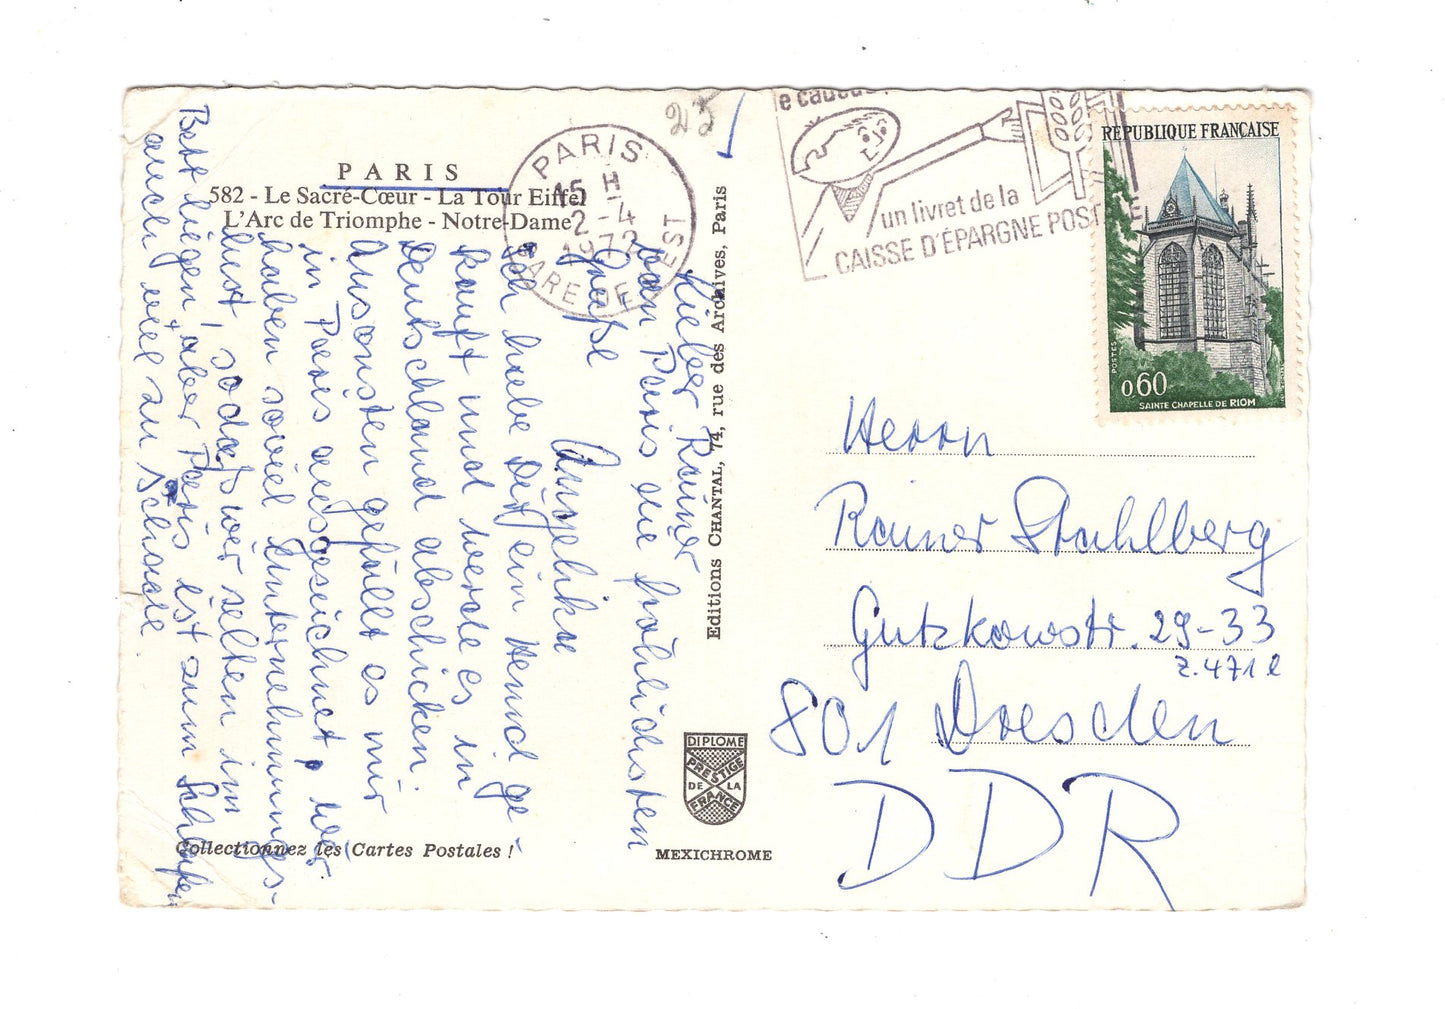 PARIS
582 - Le Sacré-Cœur - La Tour Eiffel
L'Arc de Triomphe - Notre-Dame
25
PARIS
15 H
2 - 4
1972
GARE DE L'EST
le cadeau
un livret de la
CAISSE D'ÉPARGNE POSTALE
REPUBLIQUE FRANÇAISE
POSTES
0,60
SAINTE CHAPELLE DE RIOM
Lieber Rainer
von Paris die fröhlichsten
Grüße
Angelika
Ich habe Dir ein Hemd ge-
kauft und werde es in
Deutschland abschicken.
Ansonsten gefällt es mir
in Paris ausgezeichnet, wir
haben soviel Unternehmungs-
lust, sodaß wir selten im
Bett liegen, aber Paris ist zum Schlafen
auch viel zu schade
Editions CHANTAL, 74, rue des Archives, Paris
Herrn
Rainer Stahlberg
Gutzkowstr. 29-33
Z. 471 l
801 Dresden
DDR
DIPLOME
PRESTIGE
DE LA
FRANCE
Collectionnez les Cartes Postales !
MEXICHROME